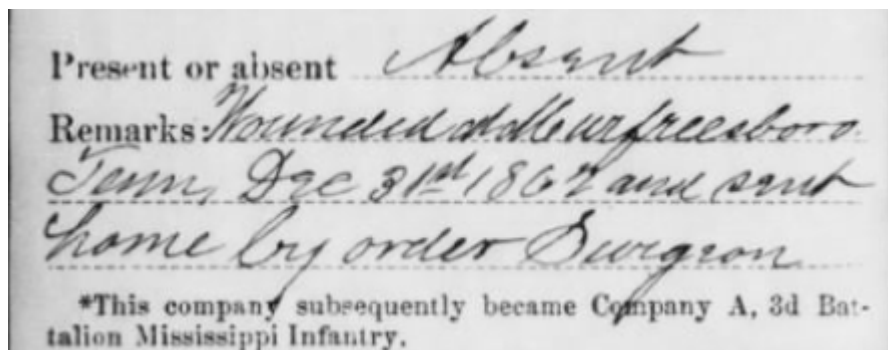 Present or absent Absent
Remarks: Wounded at Murfreesboro
Tenn, Dec 31st 1862 and sent
home by order Surgeon
*This company subsequently became Company A, 3d Bat-
talion Mississippi Infantry.